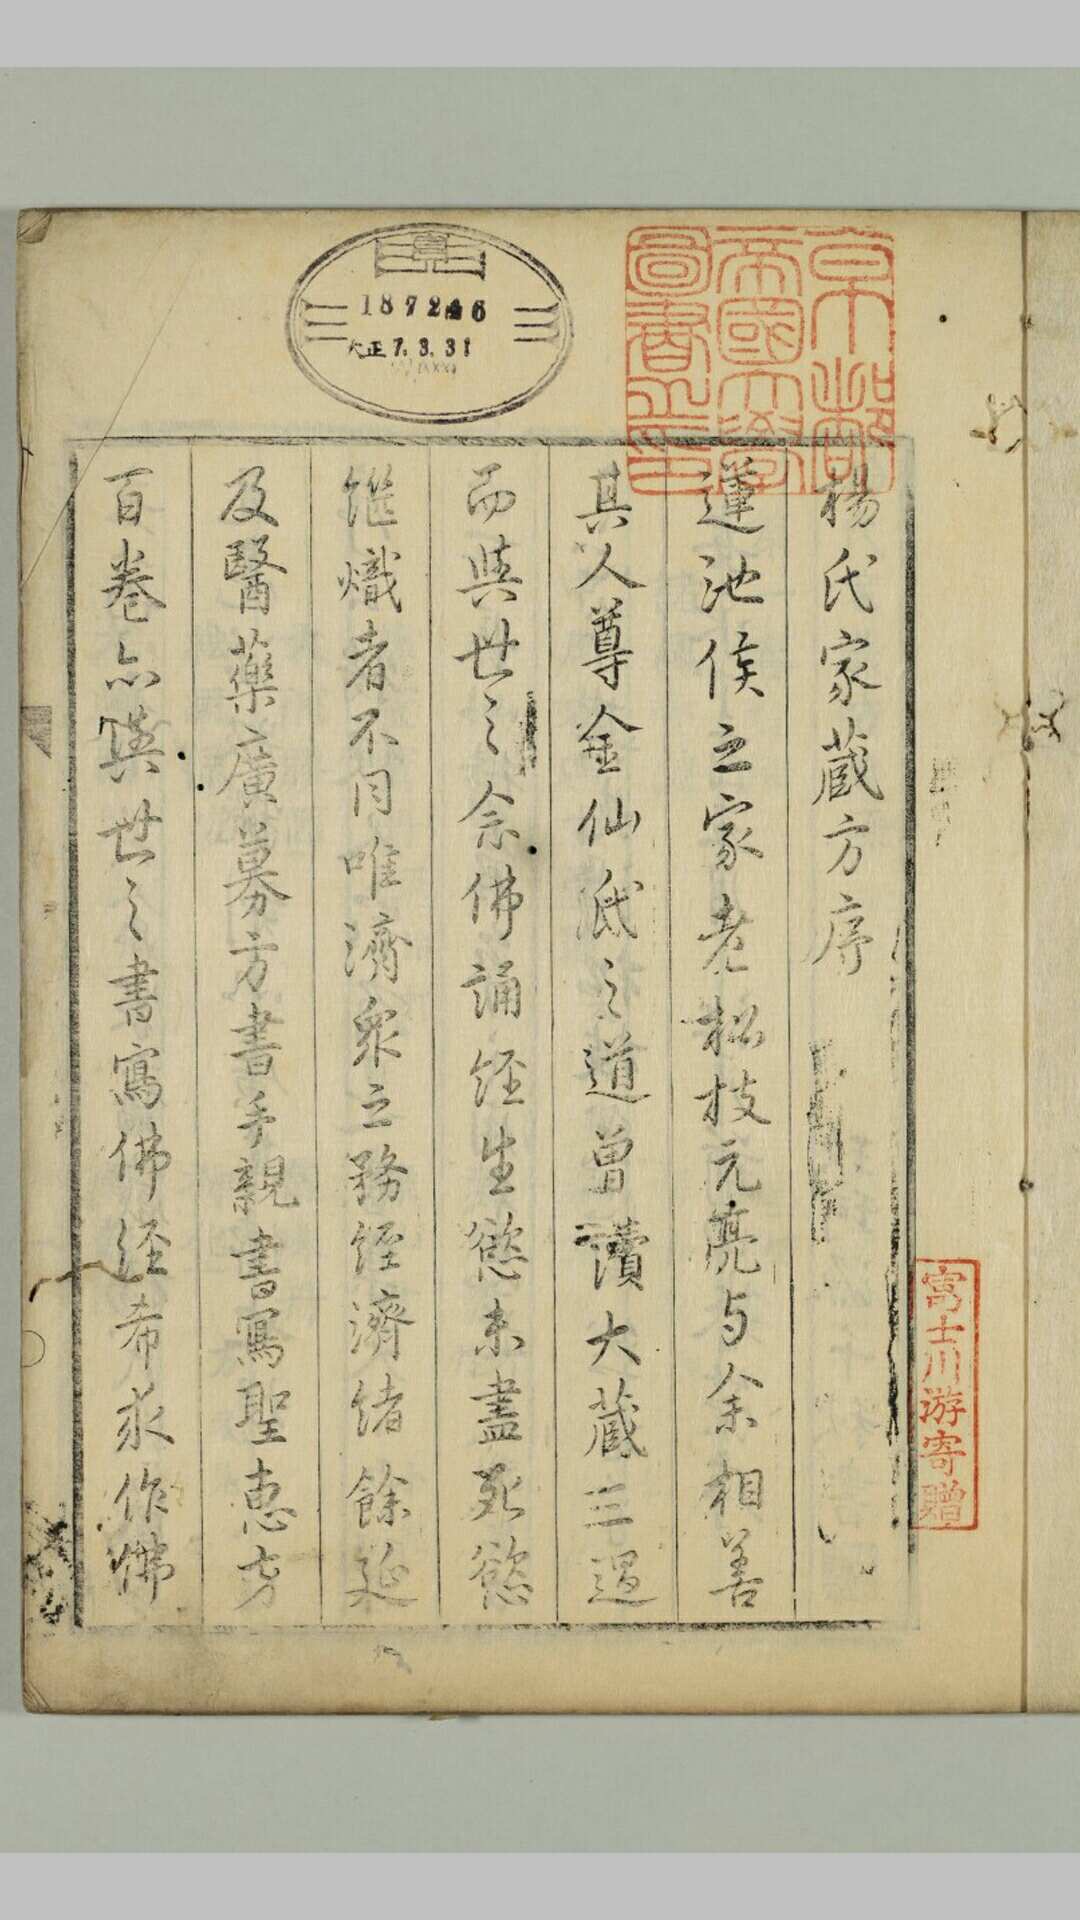 京都
帝國大學
圖書之印
187246
大正7.3.31
富士川游寄贈
楊氏家蔵方序
蓮池侯之家老松枝元亮与余相善
其人尊金仙氏之道曽讀大蔵三過
而與世之念佛誦経生慾未盡死慾
継熾者不同唯濟衆之務経濟緒餘延
及醫藥廣募方書手親書寫聖惠方
百巻亦與世之書寫佛経希求作佛